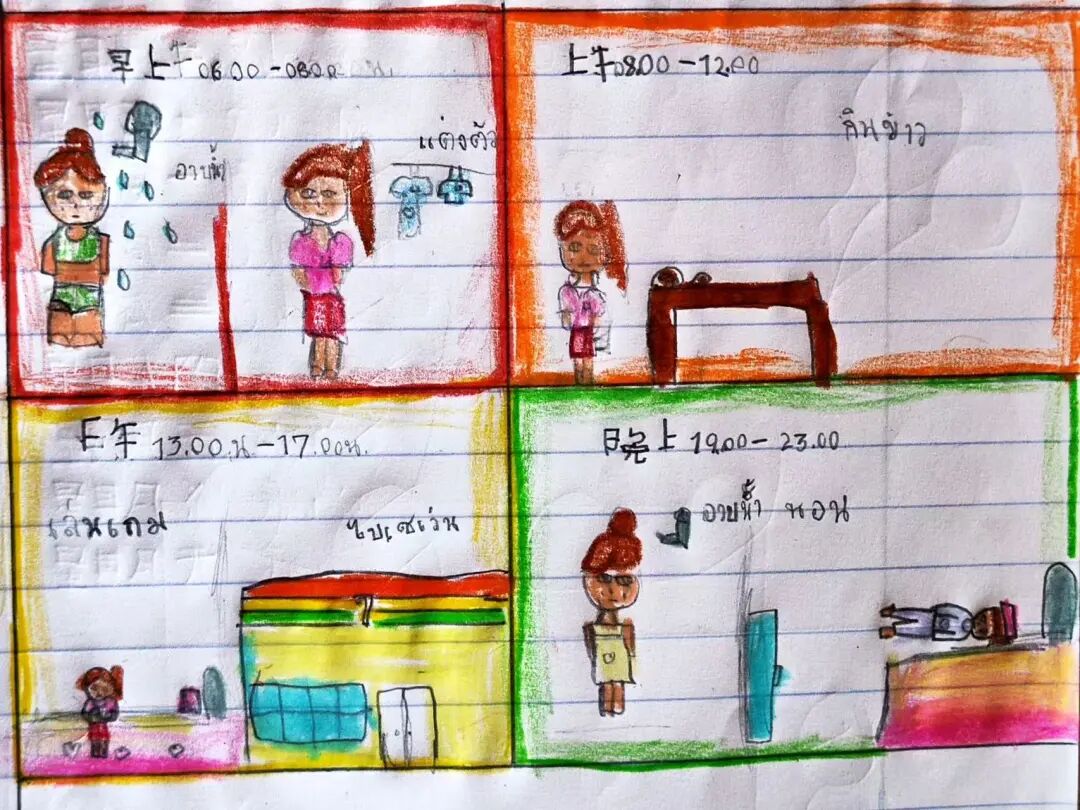 早上午 06.00 - 08.00 น.
อาบน้ำ
แต่งตัว
上午 08.00 - 12.00
กินข้าว
下午 13.00 น. - 17.00 น.
เล่นเกม
ไปเซเว่น
7
晚上 19.00 - 23.00
อาบน้ำ นอน